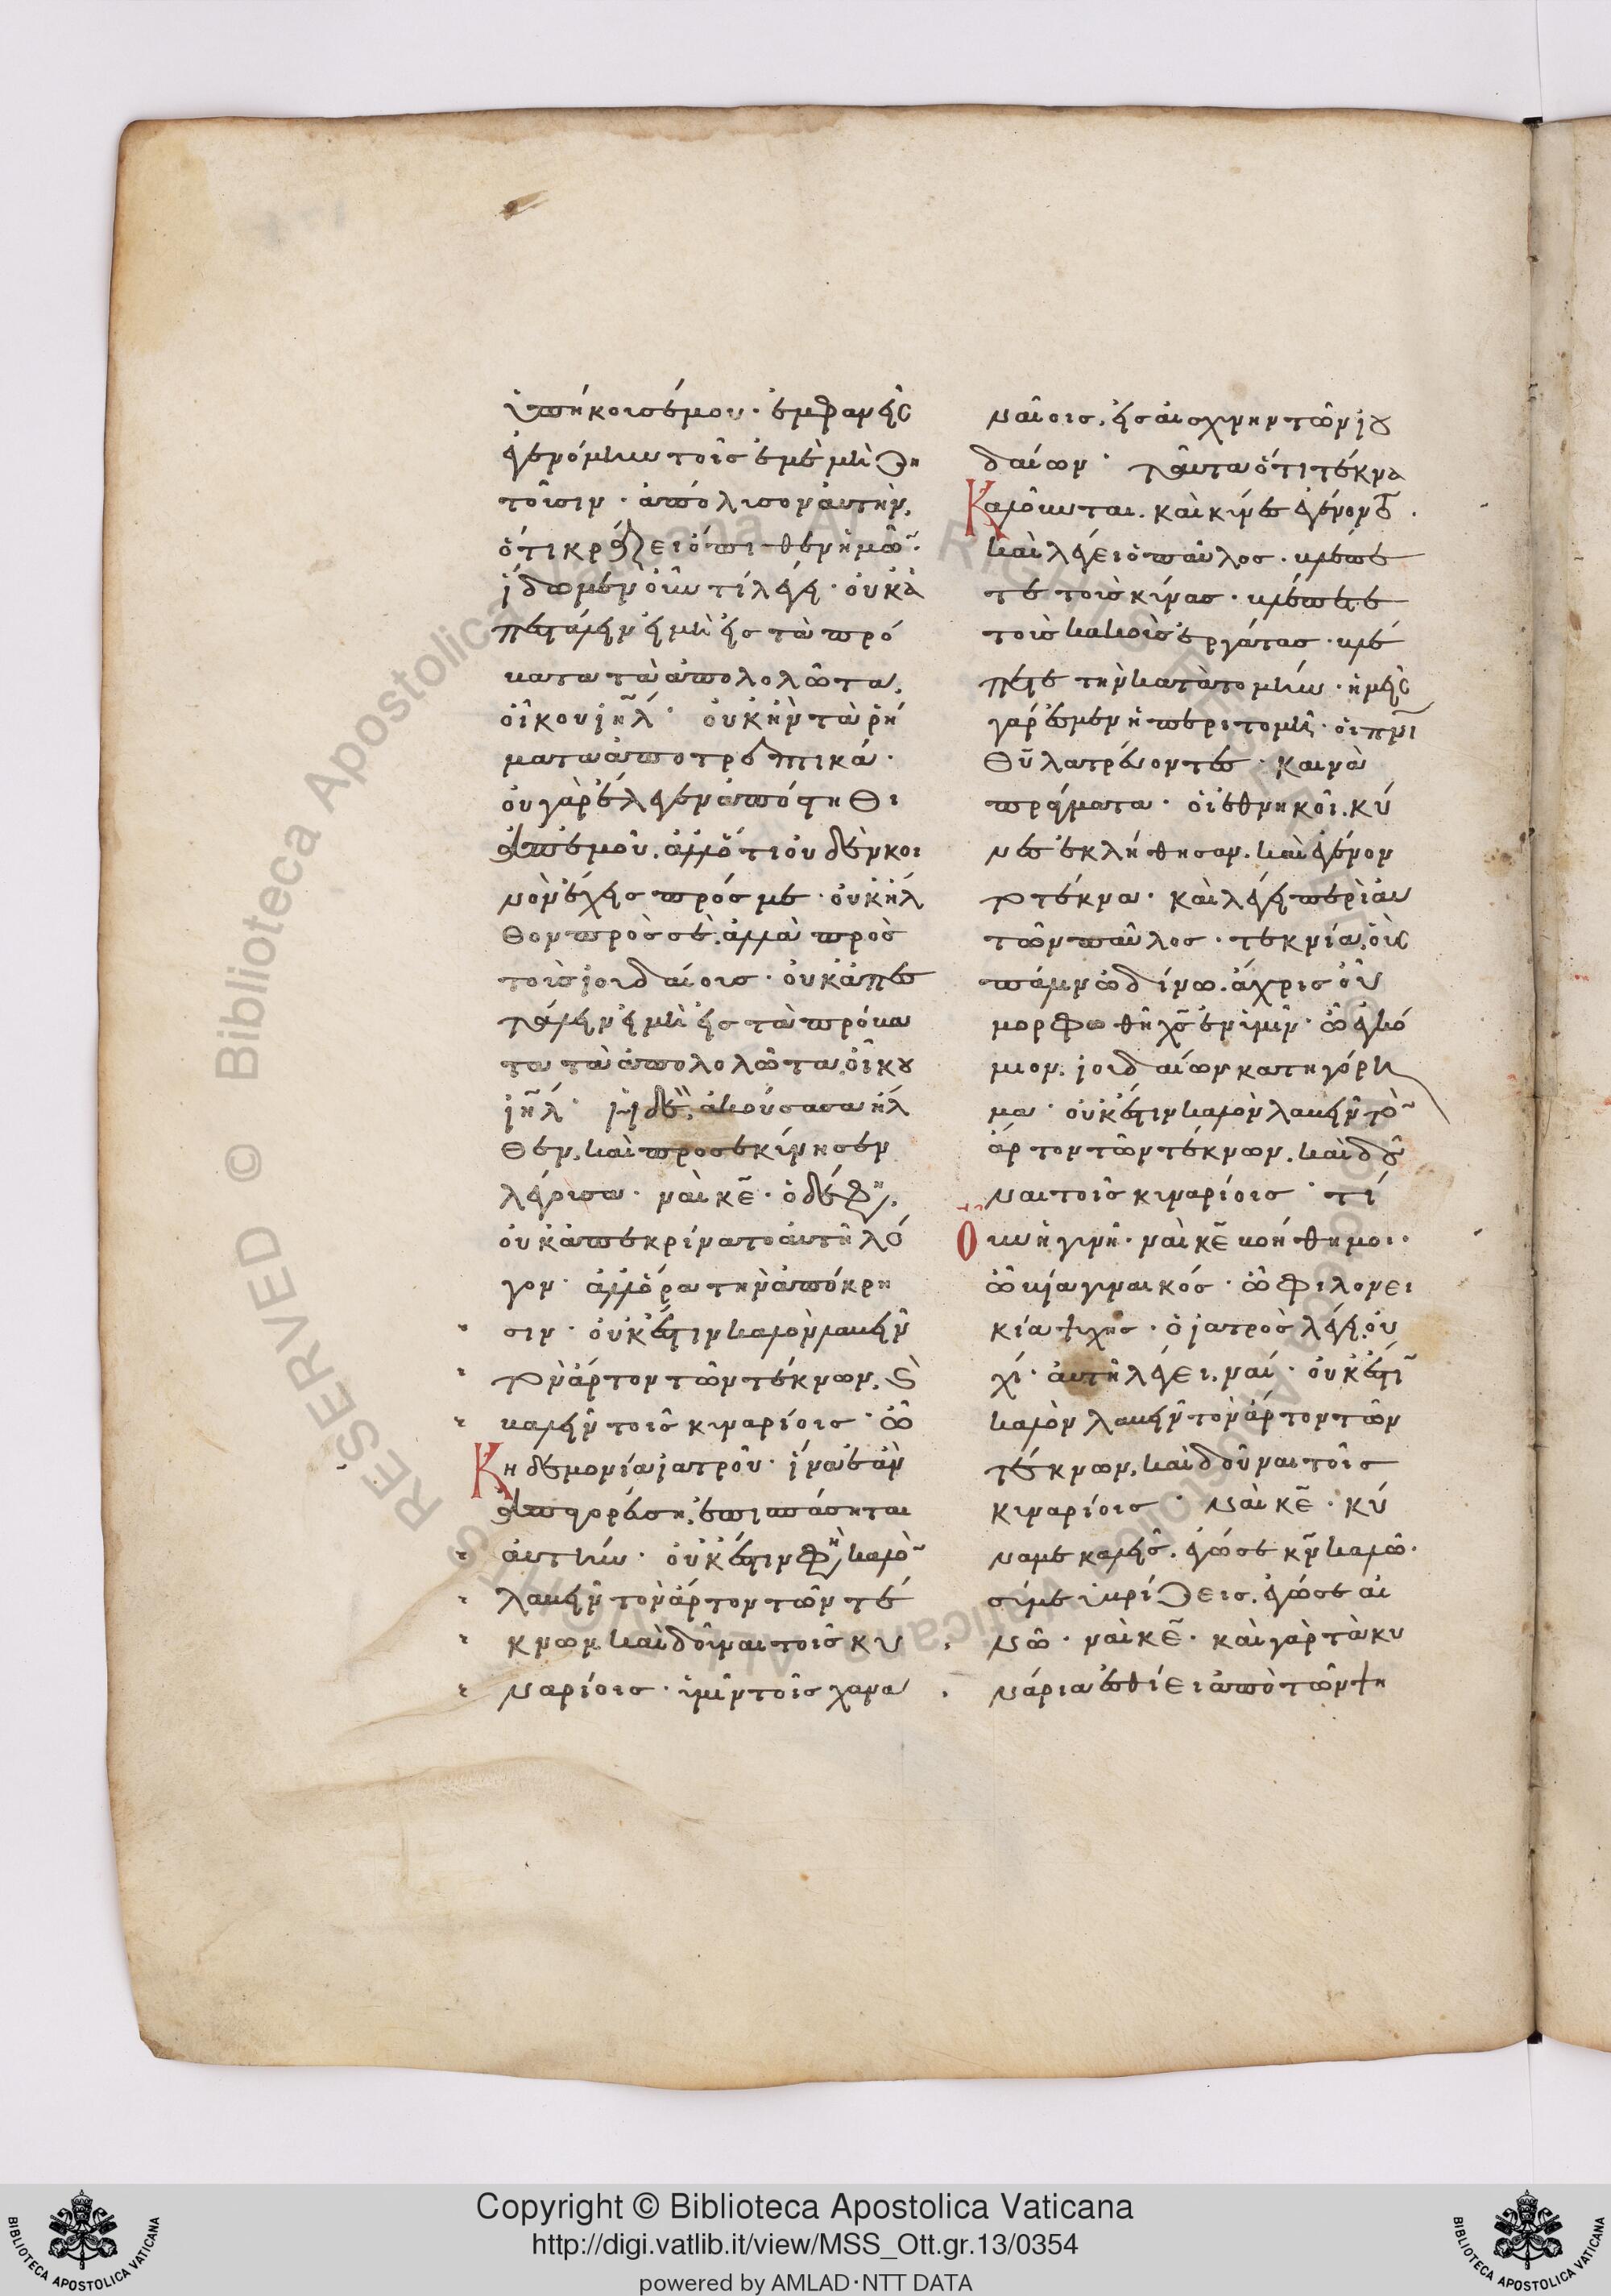 ὑπήκουσέ μου· ἐμφανὴς
ἐγενόμην τοῖς ἐμὲ μὴ ζη
τοῦσιν· ἀπόλυσον αὐτήν,
ὅτι κράζει ὄπισθεν ἡμῶ̄·
ἴδωμεν οὖν τί λέγει· οὐκ ἀ
πεστάλην εἰ μὴ εἰς τὰ πρό
βατα τὰ ἀπολολῶτα,
οἴκου ιη̄λ· οὐκ ἦν τὰ ῥή
ματα ἀποτρεπτικά·
οὐ γὰρ ἔλεγεν ἀπόστηθι
ἀπ' ἐμοῦ, ἀλλ' ὅτι οὐδὲν κοι
νὸν ἔχεις πρός με· οὐκ ἦλ
θον πρὸς σὲ, ἀλλὰ πρὸς
τοὺς ἰουδαίους· οὐκ ἀπεσ
τάλην εἰ μὴ εἰς τὰ πρόβα
τα τὰ ἀπολολῶτα, οἴκου
ιη̄λ· ἡ δὲ, ἀκούσασα ἦλ
θεν, καὶ προσεκύνησεν
λέγουσα· ναὶ κε̄· ὁ δέ φη,
οὐκ ἀπεκρίνατο αὐτῆ λό
γον· ἀλλ' ὅρα τὴν ἀπόκρη
σιν· οὐκ ἔστιν καλὸν λαβεῖν
τὸν ἄρτον τῶν τέκνων, ϗ
βαλεῖν τοῖς κυναρίοις· ὦ
Κηδεμονία ἰατροῦ· ἵνα ἐὰν
ἀπαγορεύση, ἐπισπάσηται
αὐτήν· οὐκ ἔστιν φη, καλὸ̄
λαβεῖν τὸν ἄρτον τῶν τέ
κνων, καὶ δοῦναι τοῖς κυ
ναρίοις· ὑμῖν τοῖς χανα
ναίοις, εἰς αἰσχύνην τῶν ἰου
δαίων· ταῦτα ὅτι τέκνα
Καλοῦνται, καὶ κύνες ἐγένοντο.
καὶ λέγει ὁ παῦλος· βλέπε
τε τοὺς κύνας· βλέπετε
τοὺς κακοὺς ἐργάτας· βλέ
πετε τὴν κατατομήν· ἡμεῖς
γάρ ἐσμεν ἡ περιτομή· οἱ πν̄ι
θῡ λατρεύοντες· καινὰ
πράγματα· οἱ ἐθνηκοὶ, κύ
νες ἐκλήθησαν, καὶ ἐγένον
το τέκνα· καὶ λέγει περὶ αὐ
τῶν παῦλος· τεκνία, οὓς
πάλιν ὠδίνω, ἄχρις οὗ
μορφωθῆ χς̄ ἐν ὑμῖν· ὦ ἐγκώ
μιον, ἰουδαίων κατηγόρη
μα· οὐκ ἔστιν καλὸν λαβεῖν τὸ̄
ἄρτον τῶν τέκνων, καὶ δοῦ
ναι τοῖς κυναρίοις· τί
Οὖν ἡ γυνή· ναὶ κε̄ βοήθη μοι·
ὦ βία γυναικός· ὦ φιλονει
κία ψυχῆς· ὁ ἰατρὸς λέγει, οὐ
χί· αὐτὴ λέγει, ναί· οὐκ ἔστῑ
καλὸν λαβεῖν τὸν ἄρτον τῶν
τέκνων, καὶ δοῦναι τοῖς
κυναρίοις· Ναὶ κε̄· κύ
να με καλεῖς, ἐγώ σε κν̄ καλῶ·
σύ με ὑβρίζεις, ἐγώ σε αἰ
νῶ· ναὶ κε̄· καὶ γὰρ τὰ κυ
νάρια ἐσθίει ἀπὸ τῶν ψη
RESERVED © Biblioteca Apostolica Vaticana
Copyright © Biblioteca Apostolica Vaticana
http://digi.vatlib.it/view/MSS_Ott.gr.13/0354
powered by AMLAD·NTT DATA
BIBLIOTECA APOSTOLICA VATICANA
BIBLIOTECA APOSTOLICA VATICANA